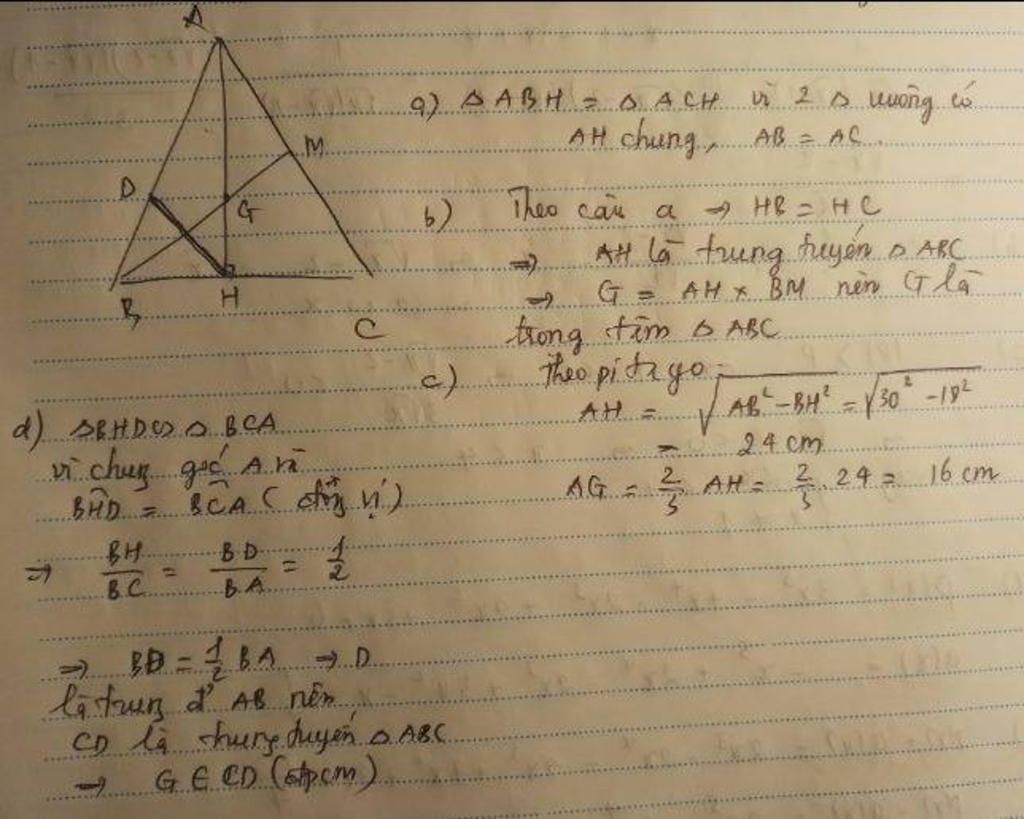 A
M
D
G
B
H
C
a) Δ ABH = Δ ACH vì 2 Δ vuông có
AH chung, AB = AC.
b) Theo câu a → HB = HC
⇒ AH là trung tuyến Δ ABC
⇒ G = AH x BM nên G là
trong tâm Δ ABC
c) Theo pitago
AH = √(AB² - BH²) = √(30² - 18²)
= 24 cm
AG = 2/3 AH = 2/3 . 24 = 16 cm
d) ΔBHD ∽ Δ BCA
vì chung góc A và
BĤD = BĈA ( đồng vị )
⇒ BH/BC = BD/BA = 1/2
⇒ BD = 1/2 BA → D
là trung đ' AB nên
CD là trung tuyến Δ ABC
→ G ∈ CD (đpcm)